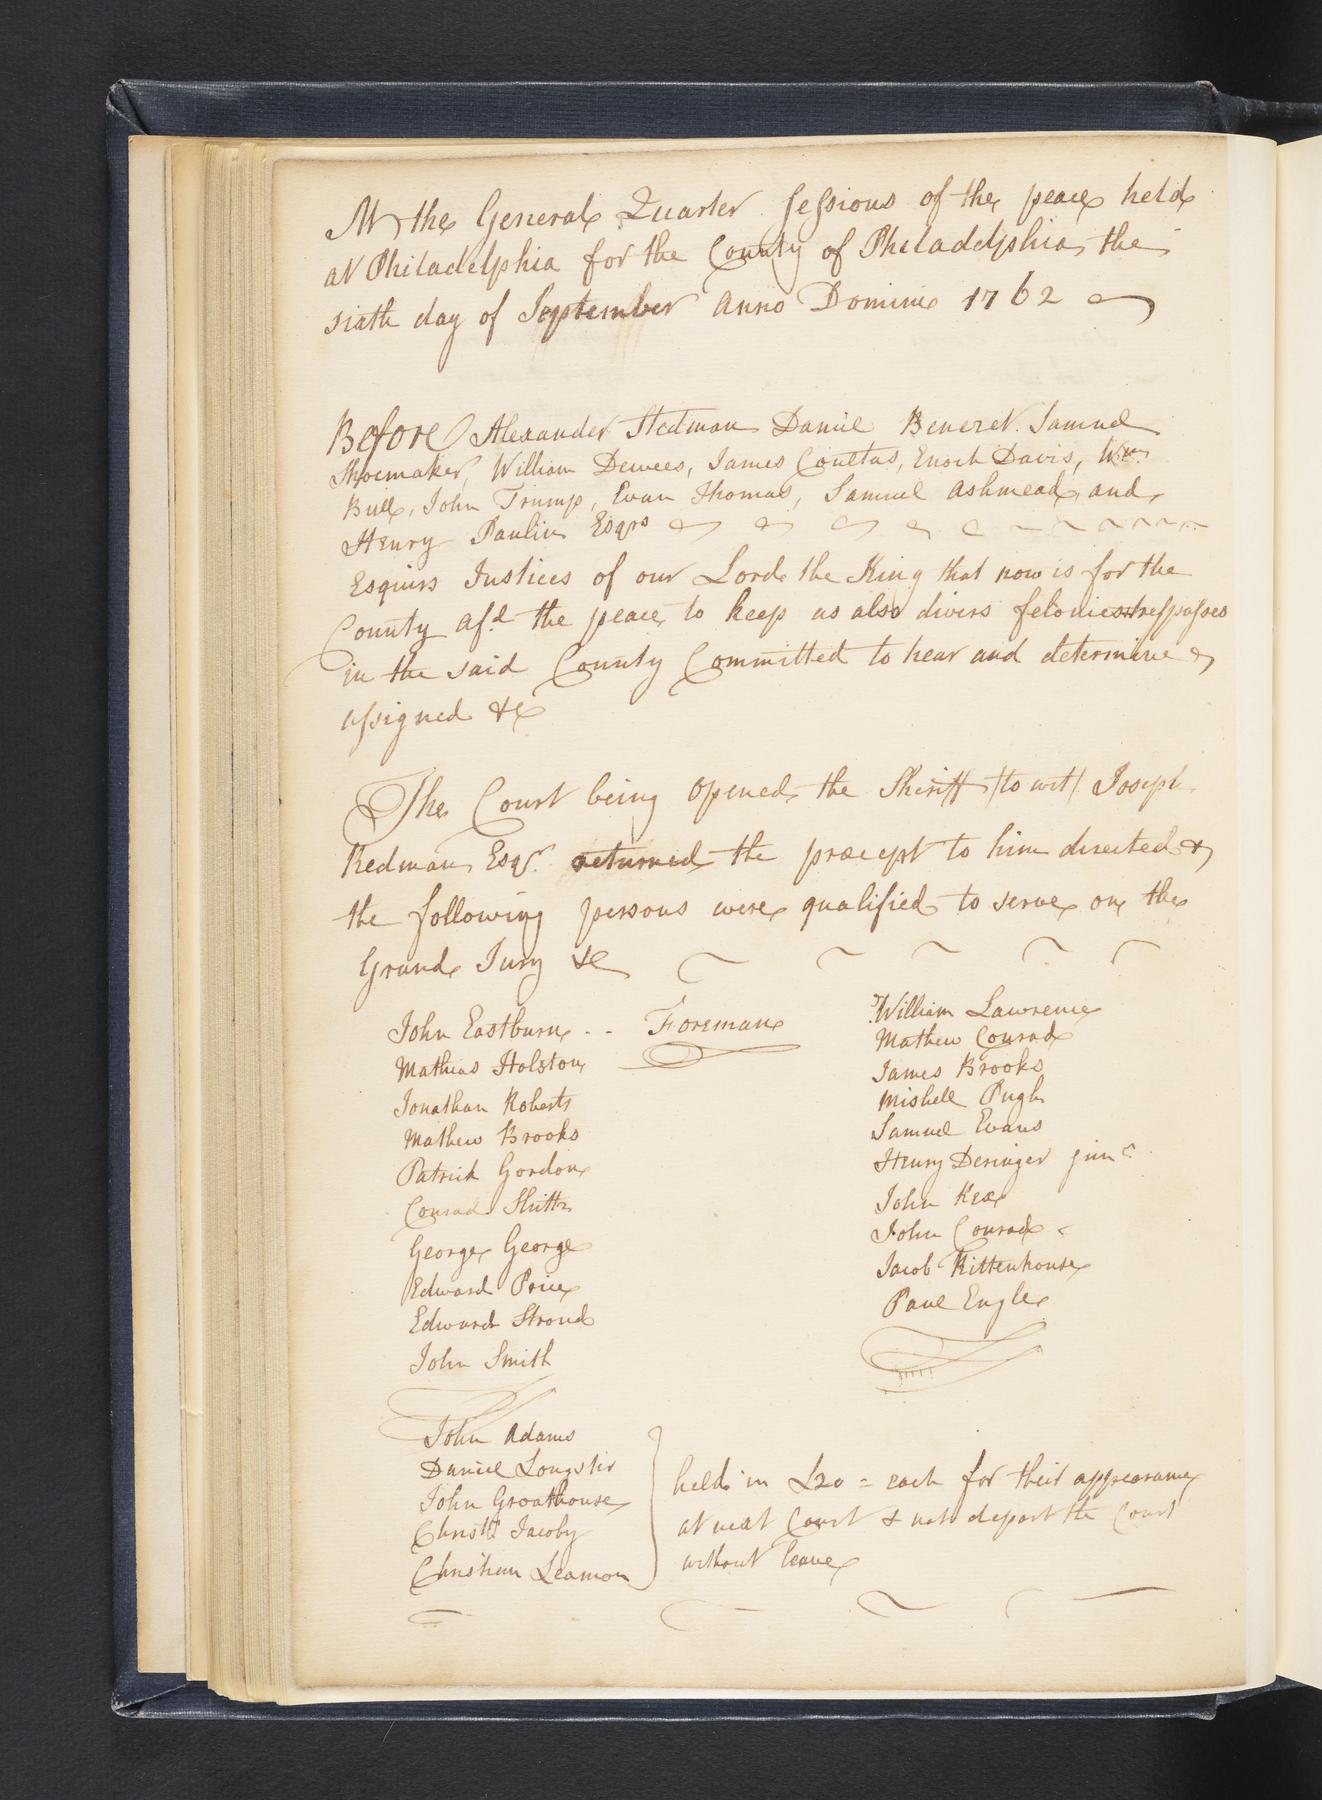 At the General Quarter Sessions of the peace held
at Philadelphia for the County of Philadelphia the
sixth day of September Anno Domini 1762
Before Alexander Stedman Daniel Benezet Samuel
Shoemaker, William Dewees, James Coultas, Enoch Davis, Wm
Bull, John Trump, Evan Thomas, Samuel Ashmead, and
Henry Paulin Esqrs
Esquirs Justices of our Lord the King that now is for the
County afd the peace to keep as also divers felonies trespasses
in the said County Committed to hear and determine
assigned &c
The Court being opened the Sheriff /to wit/ Joseph
Redman Esqr. returned the præcept to him directed &
the following persons were qualified to serve on the
Grand Jury &c
John Eastburn - - Foreman
Mathias Holston
Jonathan Roberts
Mathew Brooks
Patrick Gordon
Conrad Shitts
George George
Edward Price
Edward Stroud
John Smith
William Lawrence
Mathew Conrad
James Brooks
Mishell Pugh
Samuel Evans
Henry Deringer junr
John Kex
John Conrad
Jacob Rittenhouse
Paul Engle
John Adams
Daniel
John Groathouse
Christr Jacoby
Christian Leamon
held in £20 = each for their appearance
at next Court & not depart the Court
without leave